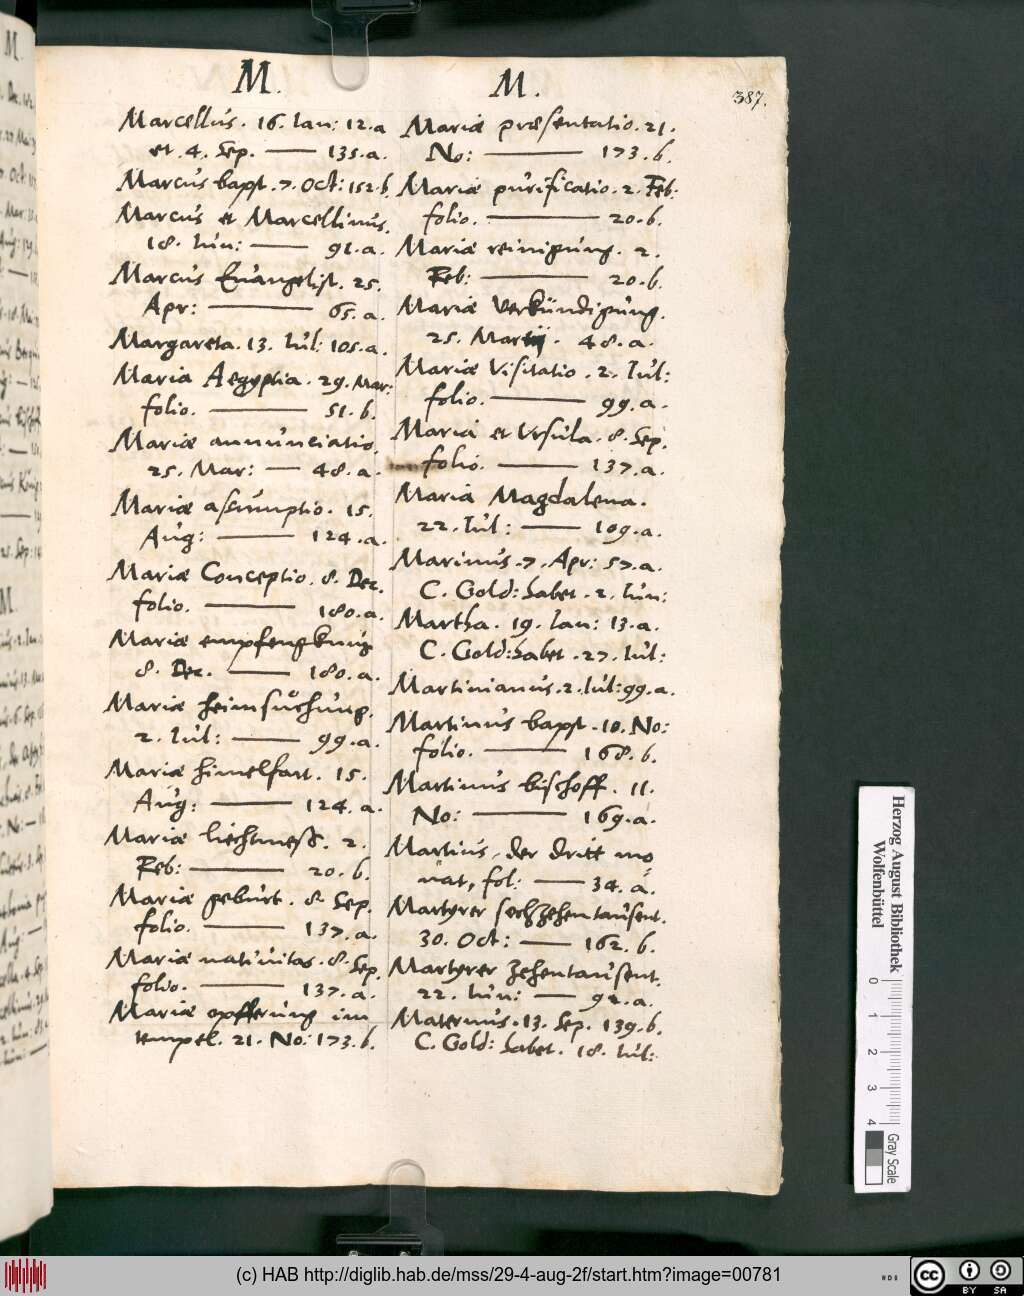 387.
M.
Marcellus. 16. Ian: 12. a
et. 4. Sep. — 135. a.
Marcus bapst. 7. Oct: 152. b.
Marcus et Marcellinus.
18. Iun: — 91. a.
Marcus Euangelist. 25.
Apr: — 65. a.
Margareta. 13. Iul: 105. a.
Maria Aegyptia. 29. Mar:
folio. — 51. b.
Mariæ annunciatio.
25. Mar: — 48. a.
Mariæ assumptio. 15.
Aug: — 124. a.
Mariæ Conceptio. 8. Dec.
folio. — 180. a.
Mariæ empfengknus
8. Dec. — 180. a.
Mariæ heimsuchung.
2. Iul: — 99. a.
Mariæ himelfart. 15.
Aug: — 124. a.
Mariæ liechtmeß. 2.
Feb: — 20. b.
Mariæ geburt. 8. Sep.
folio. — 137. a.
Mariæ natiuitas. 8. Sep.
folio. — 137. a.
Mariæ opfferung im
tempel. 21. No: 173. b.
M.
Mariæ præsentatio. 21.
No: — 173. b.
Mariæ purificatio. 2. Feb:
folio. — 20. b.
Mariæ reinigung. 2.
Feb: — 20. b.
Mariæ Verkündigung.
25. Martij. 48. a.
Mariæ Visitatio. 2. Iul:
folio. — 99. a.
Maria et Vrsula. 8. Sep.
folio. — 137. a.
Maria Magdalena.
22. Iul: — 109. a.
Marinus. 7. Apr: 57. a.
C. Gold: habet. 2. Iun:
Martha. 19. Ian: 13. a.
C. Gold: habet. 27. Iul:
Martinianus. 2. Iul: 99. a.
Martinus bapst. 10. No:
folio. — 168. b.
Martinus bischoff. 11.
No: — 169. a.
Martius, der dritt mo
nat, fol: — 34. a.
Martyrer sechzehentausent.
30. Oct: — 162. b.
Martyrer zehentausent.
22. Iun: — 92. a.
Maternus. 13. Sep. 139. b.
C. Gold: habet. 18. Iul:
Herzog August Bibliothek
Wolfenbüttel
0 1 2 3 4
Gray Scale
(c) HAB http://diglib.hab.de/mss/29-4-aug-2f/start.htm?image=00781
cc BY SA